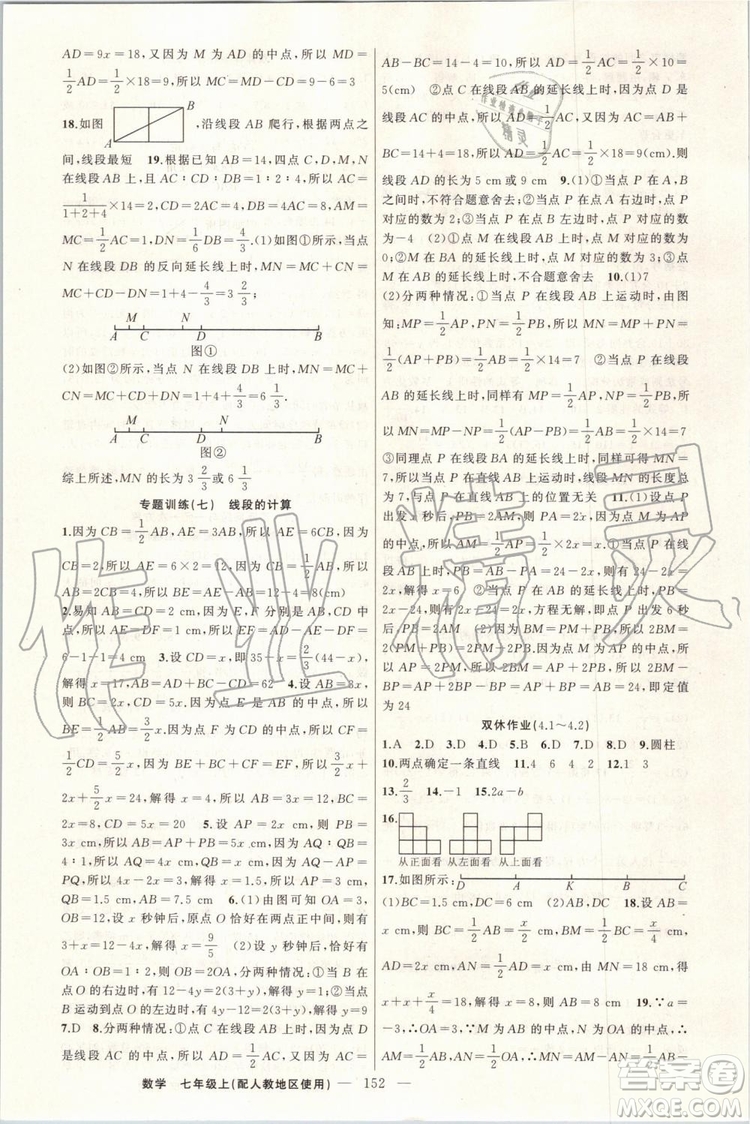 AD=9x=18,又因为 M 为 AD 的中点,所以 MD=
1/2 AD=1/2×18=9,所以 MC=MD-CD=9-6=3
(cm)
18.如图 A B ,沿线段 AB 爬行,根据两点之
间,线段最短 19.根据已知 AB=14,四点 C,D,M,N
在线段 AB 上时,又 AC∶CD∶DB=1∶2∶4,则 AC=
1/(1+2+4)×14=2,CD=4,DB=8,又 M 为 AC 的中点,则
MC=1/2 AC=1,DN=1/4 DB=4/3.(1)如图①所示,当点
N 在线段 DB 的反向延长线上时,MN=MC+CD-
DN=1+4-4/3=3 2/3;
A C M N D B
图①
(2)如图②所示,当点 N 在线段 DB 上时,MN=MC+
CN=MC+CD+DN=1+4+4/3=6 1/3.
A M C D N B
图②
综上所述,MN 的长为 3 2/3 或 6 1/3
专题训练(七) 线段的计算
1.因为 CB=1/2 AB,AE=3AB,所以 AE=6CB,又因为
CB=2,所以 AE=6×2=12,又因为 DE=1/3 AE=4,所以
AD=AB+DB=2CB+DB=4+4=8(cm)
2.易知 AB=CD=2 cm,因为 E,F 分别是 AB,CD 的
中点,所以 AE=DF=1 cm,所以 EF=AD-AE-DF=
6-1-1=4 cm 3.设 CD=x,则 35-x=2/3(44-x),
解得 x=17,AB+CD=62 4.设 AB=3x,则 CD=5x,
BC=2x,因为点 E 为 AB 的中点,所以 BE=1/2 AB=
3/2 x,因为点 F 为 CD 的中点,所以 CF=1/2 CD=5/2 x,
因为 BE+BC+CF=EF,且 EF=24,所以 3/2 x+
2x+5/2 x=24,解得 x=4,所以 AB=3x=12,BC=
2x=8,CD=5x=20 5.设 AP=x cm,则 PB=
3x cm,AB=4x cm,AQ=2x cm,因为 AQ∶QB=
1∶1,所以 AQ=QB=2x cm,所以 PQ=AQ-AP=
PQ,所以 x=2,所以 AB=8 cm 6.(1)由图可知 AO=3,
BO=12,设 x 秒钟后,原点 O 恰好在两点正中间,则有
3+x=12-4x,解得 x=9/5 (2)设 y 秒钟后,恰好有
OA∶OB=1∶2,由题意,分两种情况:①当 B 在
点 O 的右边时,有 12-4y=2(3+y),解得 y=1;②当点
B 运动到点 O 的左边时,有 4y-12=2(3+y),解得 y=9
7.D 8.分两种情况:①点 C 在线段 AB 上时,AC=
AB-BC=14-4=10,所以 AD=1/2 AC=1/2×10=
5(cm) ②点 C 在线段 AB 的延长线上时,因为点 D 是
线段 AC 的中点,所以 AC=AB+BC=14+4=
18,所以 AD=1/2 AC=1/2×18=9(cm).综上所述,
线段 AD 的长为 5 cm 或 9 cm 9.(1)①点 P 在 A,B
之间时,不符合题意舍去;②当点 P 在点 A 右边时,点 P
对应的数为 2;③当点 P 在点 B 左边时,点 P 对应的数
为-4 (2)①当点 M 在线段 AB 上时,点 M 对应的数为
0;②点 M 在 BA 的延长线上时,点 M 对应的数为 3;③点
M 在 AB 的延长线上时,不合题意舍去 10.(1)7
(2)分两种情况:①当点 P 在线段 AB 上运动时,由图
知:MP=1/2 AP,PN=1/2 PB,所以 MN=MP+PN=
1/2(AP+PB)=1/2 AB=1/2×14=7 ②当点 P 在线段
AB 的延长线上时,同样有 MP=1/2 AP,NP=1/2 PB,所
以 MN=MP-NP=1/2(AP-PB)=1/2×14=7
③同理点 P 在线段 BA 的延长线上时,同样可得 MN=
7,所以当点 P 在直线 AB 上运动时,线段 MN 的长度总
为 7,与点 P 在直线 AB 上的位置无关 11.(1)设点 P
出发 x 秒后,PB=2AM,则 PA=2x,因为点 M 为 AP
的中点,所以 AM=1/2 AP=x ①点 P 在点 B 左边时,
PB=2x,PB=AB-PA=24-2x,由题意得 24-2x=
2x,解得 x=6 ②点 P 在点 B 右边时,PB=2x-24,
2x-24=2x,方程无解,即出发 6 秒
后,PB=2AM (2)因为 BM=PM+PB,所以 2BM=
2PM+2PB,因为 2PM=AP,所以 2BM-BP=2PM+
2PB-BP=AP+PB,AP+PB=AB=24,即定值
为 24
双休作业(4.1~4.2)
1.A 2.D 3.D 4.C 5.C 6.C 7.D 8.D 9.圆柱
10.两点确定一条直线 11.4 6 4 2 12.1 3
13.2/3 14.-1 15.2a-b
16.
从正面看 从左面看 从上面看
17.如图所示: D A K B C
(1)BC=2 cm,DC=6 cm (2)AB,AC 18.设 AB=
x cm,则 BC=1/2 AB=x/2 cm,BD=1/2 BC=x/4 cm,
AD=2x=2x cm,所以 AD+AB+BD=18,即
x+x+x/4=18,解得 x=8,所以 AB=8 cm 19.∵a=
-3,∴OA=3,∵M 为 AB 的中点,N 为 OA 的中点,∴
AM=1/2 AB,AN=1/2 OA,∴MN=AM-AN=1/2 AB-
数学 七年级上(配人教地区使用) — 152 —
作业精灵
答案圈
MXQE.COM